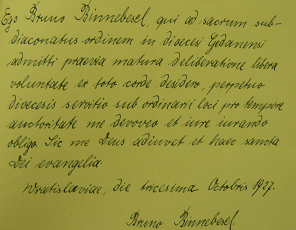 Ego Bruno Binnebesel, qui ad sacrum sub-
diaconatus ordinem in dioecesi Gedanensi
admitti praevia matura deliberatione libera
voluntate et toto corde desidero, perpetuo
dioecesis servitio sub ordinarii loci pro tempore
auctoritate me devoveo et iure iurando
obligo. Sic me Deus adiuvet et haec sancta
Dei evangelia.
Wratislaviae, die tricesima Octobris 1927.
Bruno Binnebesel.